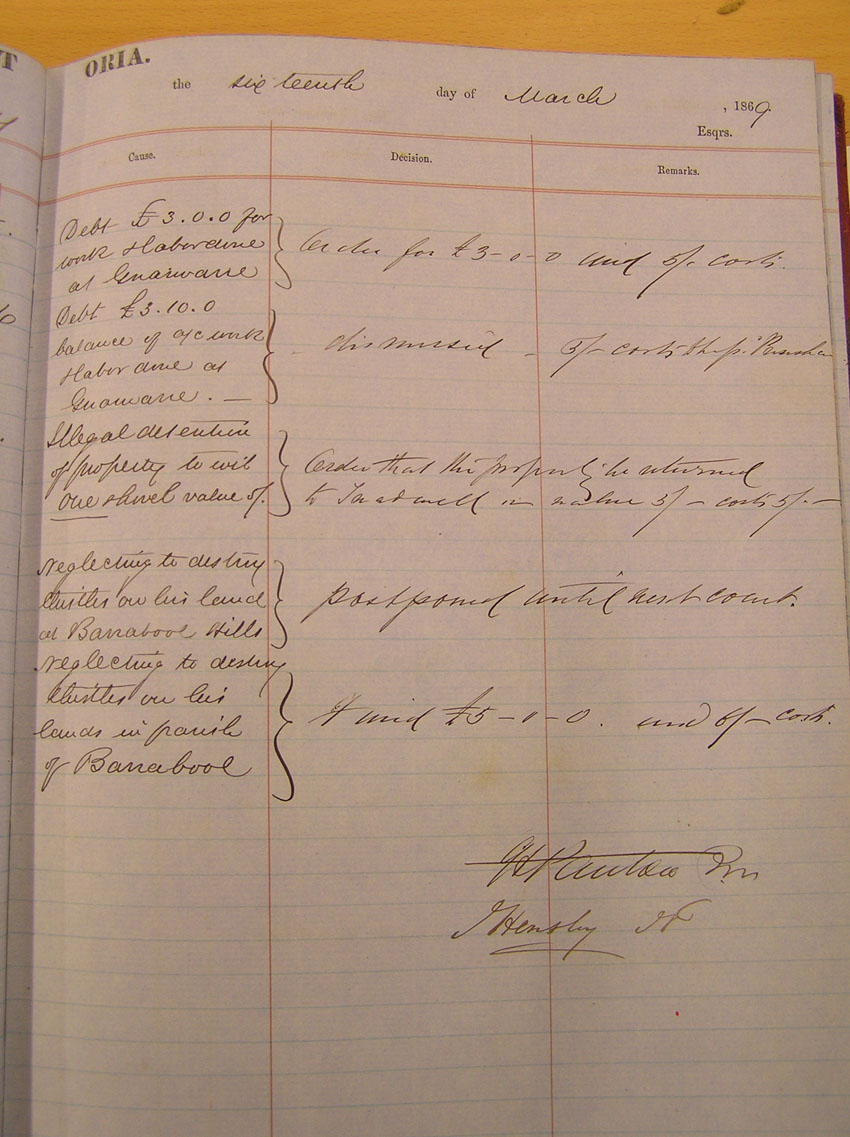 ORIA.
the sixteenth day of March , 1869
Esqrs.
Cause. Decision. Remarks.
Debt £3.0.0 for
work & labor done
at Gnarwarre
Order for £3-0-0 and 5/- costs.
Debt £3.10.0
balance of a/c work
& labor done at
Gnarwarre. —
- dismissed - 5/- costs
Illegal detention
of property to wit
one shovel value 5/-
Order that the property be returned
to Treadwell or value 5/- costs 5/-
Neglecting to destroy
thistles on his land
at Barrabool Hills
postponed until next court.
Neglecting to destroy
thistles on his
lands in parish
of Barrabool
Fined £5-0-0. and 6/- costs.
PM
Hensby JP